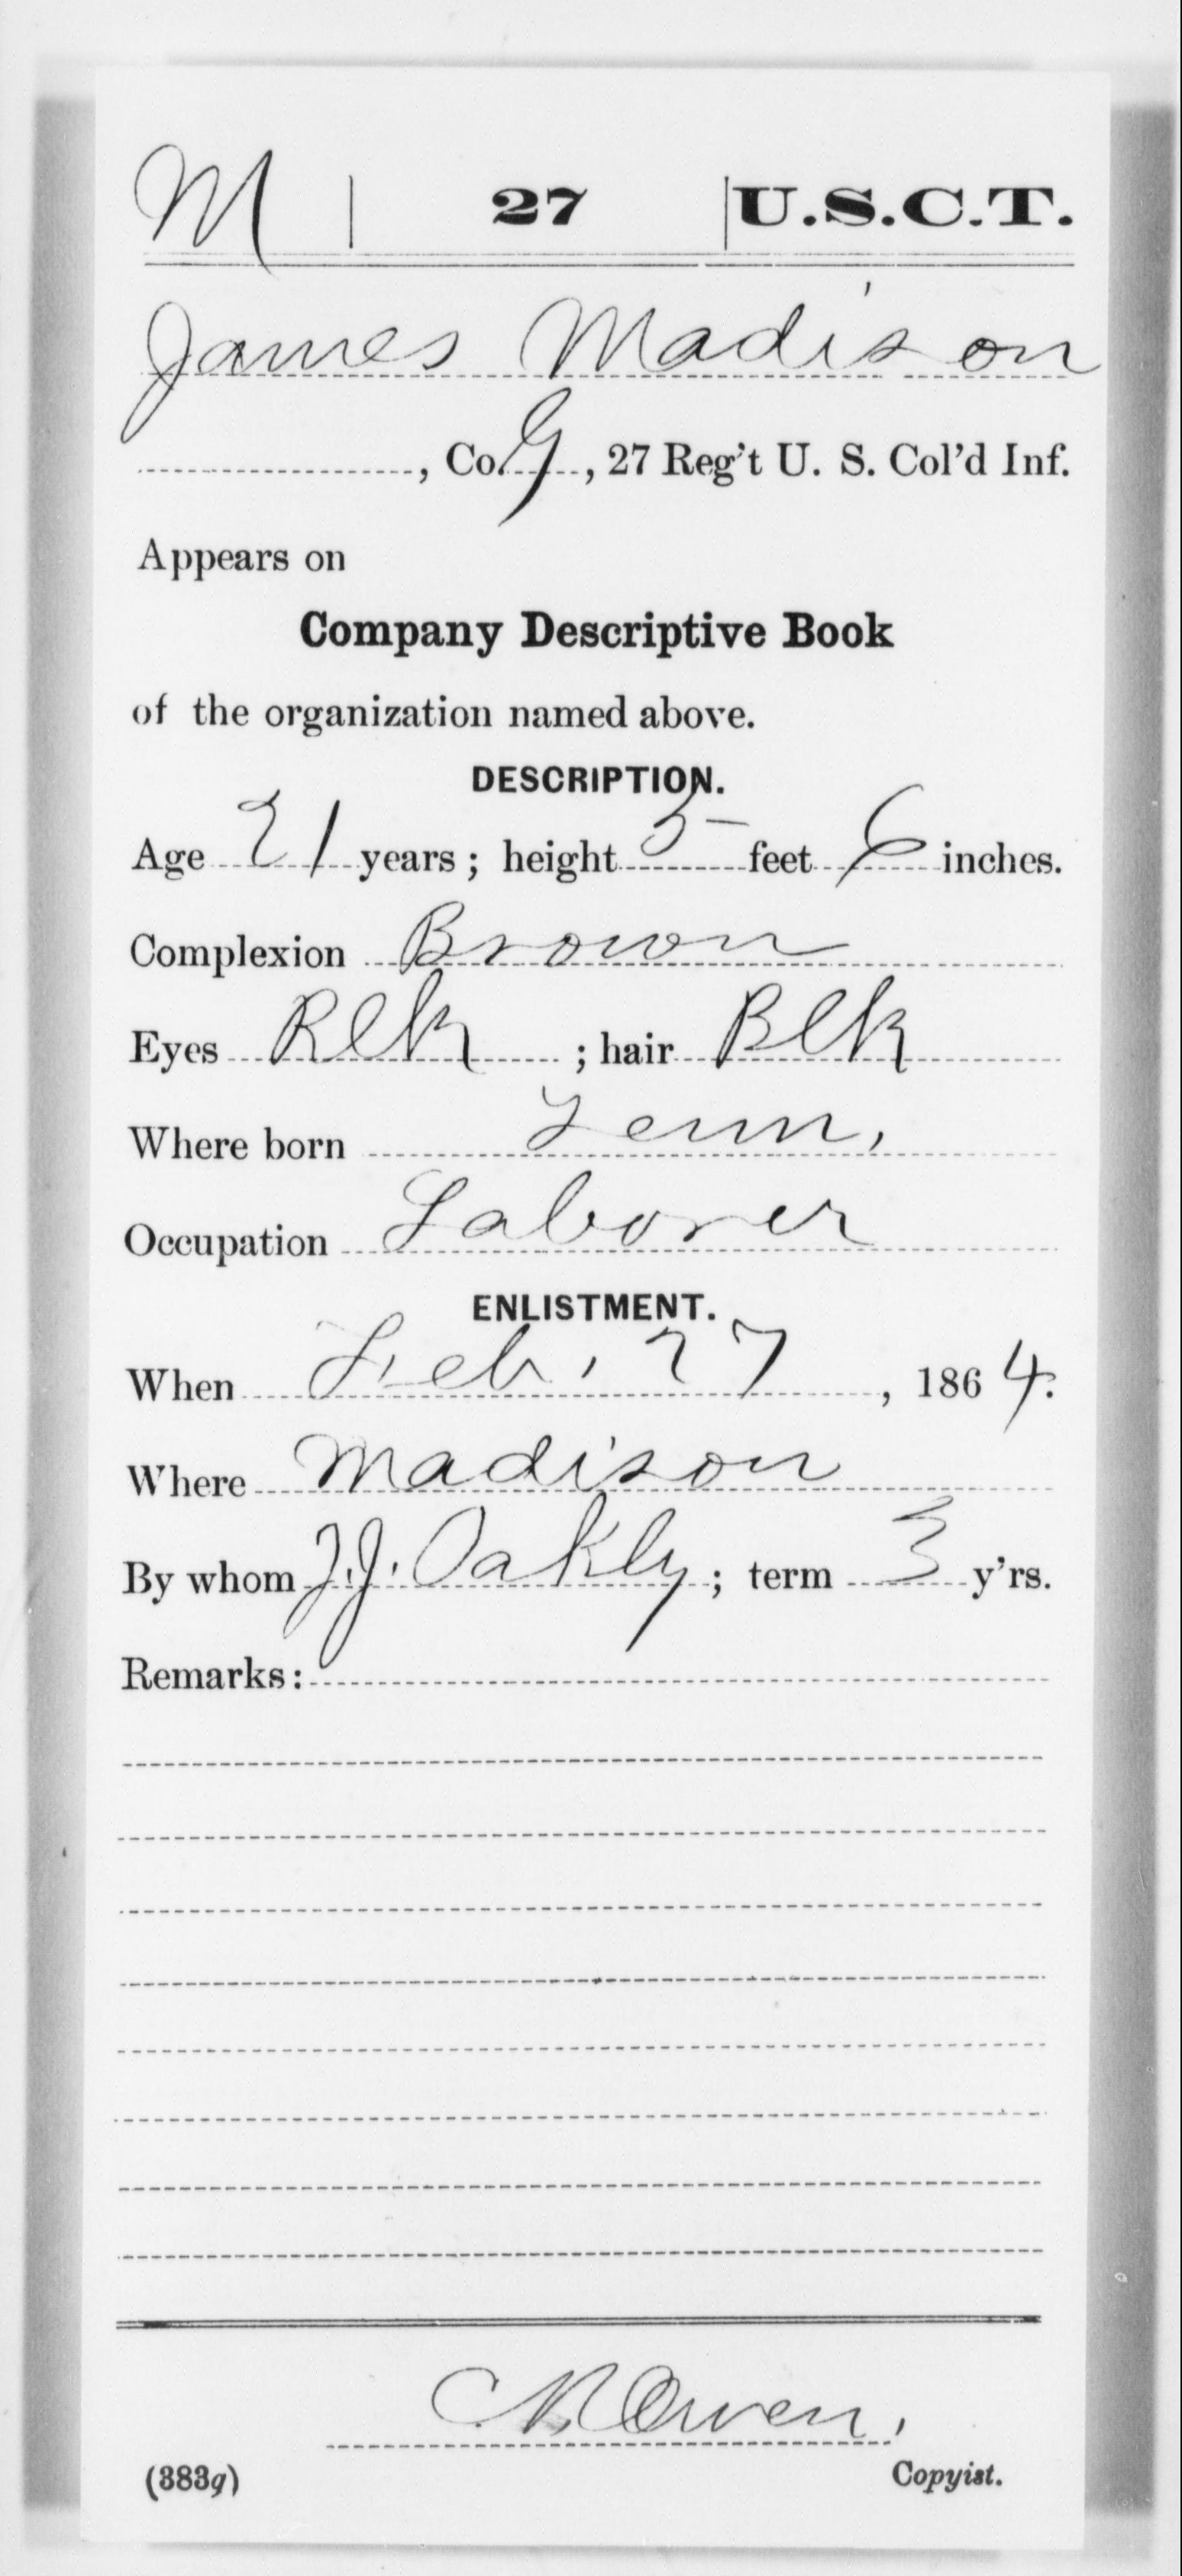 M | 27 | U.S.C.T.
James Madison
, Co. G, 27 Reg't U. S. Col'd Inf.
Appears on
Company Descriptive Book
of the organization named above.
DESCRIPTION.
Age 21 years; height 5 feet 6 inches.
Complexion Brown
Eyes Blk; hair Blk
Where born Tenn.
Occupation Laborer
ENLISTMENT.
When Feb. 27, 1864.
Where Madison
By whom J.J. Oakly; term 3 y'rs.
Remarks:
Owen.
(383g) Copyist.